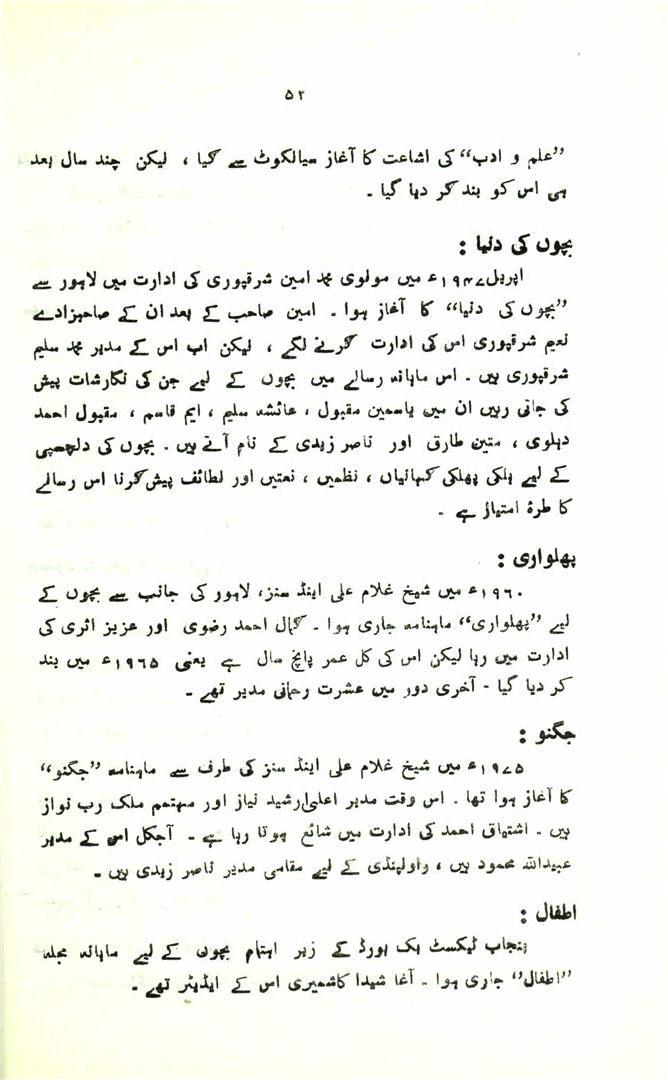 ۵۲
”علم و ادب“ کی اشاعت کا آغاز سیالکوٹ سے کیا ، لیکن چند سال بعد
ہی اس کو بند کر دیا گیا ۔
بچوں کی دنیا :
اپریل ۱۹۴۷ء میں مولوی محمد امین شرقپوری کی ادارت میں لاہور سے
”بچوں کی دنیا“ کا آغاز ہوا ۔ امین صاحب کے بعد ان کے صاحبزادے
نعیم شرقپوری اس کی ادارت کرنے لگے ، لیکن اب اس کے مدیر محمد سلیم
شرقپوری ہیں ۔ اس ماہانہ رسالے میں بچوں کے لیے جن کی نگارشات پیش
کی جاتی رہیں ان میں یاسمین مقبول ، عائشہ سلیم ، ایم قاسم ، مقبول احمد
دہلوی ، متین طارق اور ناصر زیدی کے نام آتے ہیں ۔ بچوں کی دلچسپی
کے لیے ہلکی پھلکی کہانیاں ، نظمیں ، نعتیں اور لطائف پیش کرنا اس رسالے
کا طرۂ امتیاز ہے ۔
پھلواری :
۱۹۶۰ء میں شیخ غلام علی اینڈ سنز، لاہور کی جانب سے بچوں کے
لیے ”پھلواری“ ماہنامہ جاری ہوا ۔ کمال احمد رضوی اور عزیز اثری کی
ادارت میں رہا لیکن اس کی کل عمر پانچ سال ہے یعنی ۱۹۶۵ء میں بند
کر دیا گیا ۔ آخری دور میں عشرت رحمانی مدیر تھے ۔
جگنو :
۱۹۷۵ء میں شیخ غلام علی اینڈ سنز کی طرف سے ماہنامہ ”جگنو“
کا آغاز ہوا تھا ۔ اس وقت مدیر اعلیٰ رشید نیاز اور مہتمم ملک رب نواز
ہیں ۔ اشتیاق احمد کی ادارت میں شائع ہوتا رہا ہے ۔ آجکل اس کے مدیر
عبیداللہ محمود ہیں ، راولپنڈی کے لیے مقامی مدیر ناصر زیدی ہیں ۔
اطفال :
پنجاب ٹیکسٹ بک بورڈ کے زیر اہتمام بچوں کے لیے ماہانہ مجلہ
”اطفال“ جاری ہوا ۔ آغا شیدا کاشمیری اس کے ایڈیٹر تھے ۔